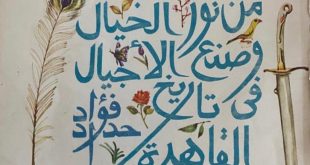 من نور الخيال
وصنع الأجيال
في تاريخ
القاهرة
فؤاد
حداد